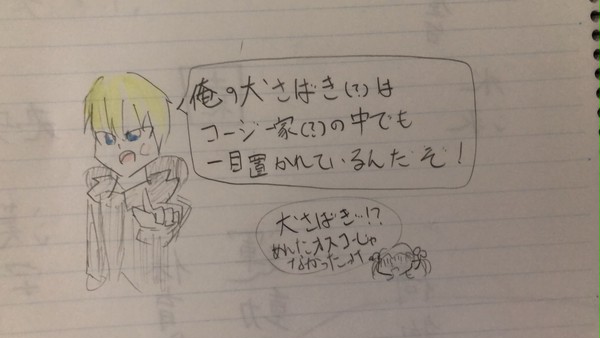 俺の犬さばき(?)は
コージー家(?)の中でも
一目置かれているんだぞ!
犬さばき…!?
めんたオスコーじゃ
なかったっけ